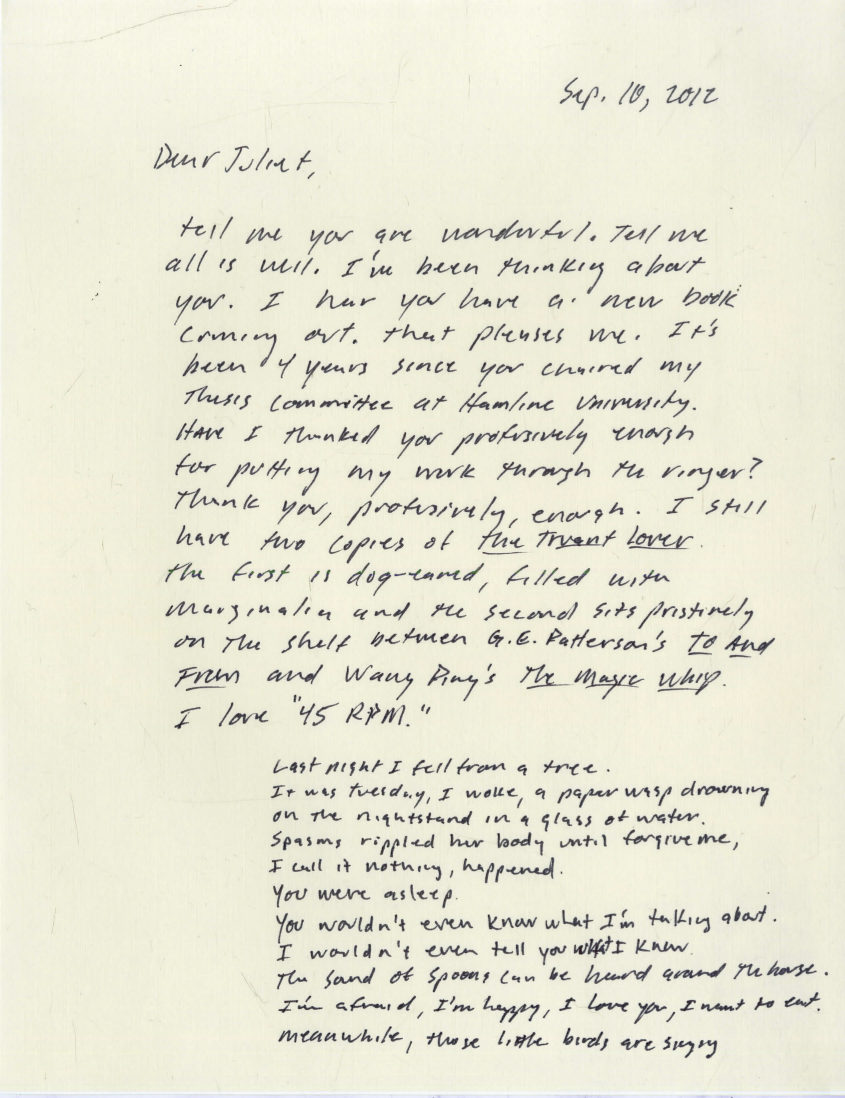 Sep. 10, 2012
Dear Juliet,
tell me you are wonderful. Tell me
all is well. I'm been thinking about
you. I hear you have a new book
coming out. that pleases me. It's
been 4 years since you chaired my
Thesis committee at Hamline University.
Have I thanked you profusively enough
for putting my work through the ringer?
Thank you, profusively, enough. I still
have two copies of the Truant Lover.
the first is dog-eared, filled with
marginalia and the second sits pristinely
on the shelf between G.E. Patterson's To And
From and Wang Ping's The Magic Whip.
I love "45 RPM."
Last night I fell from a tree.
It was tuesday, I woke, a paper wasp drowning
on the nightstand in a glass of water.
Spasms rippled her body until forgive me,
I call it nothing, happened.
You were asleep.
You wouldn't even know what I'm talking about.
I wouldn't even tell you what I know.
The sound of spoons can be heard around the house.
I'm afraid, I'm happy, I love you, I want to eat.
meanwhile, those little birds are singing